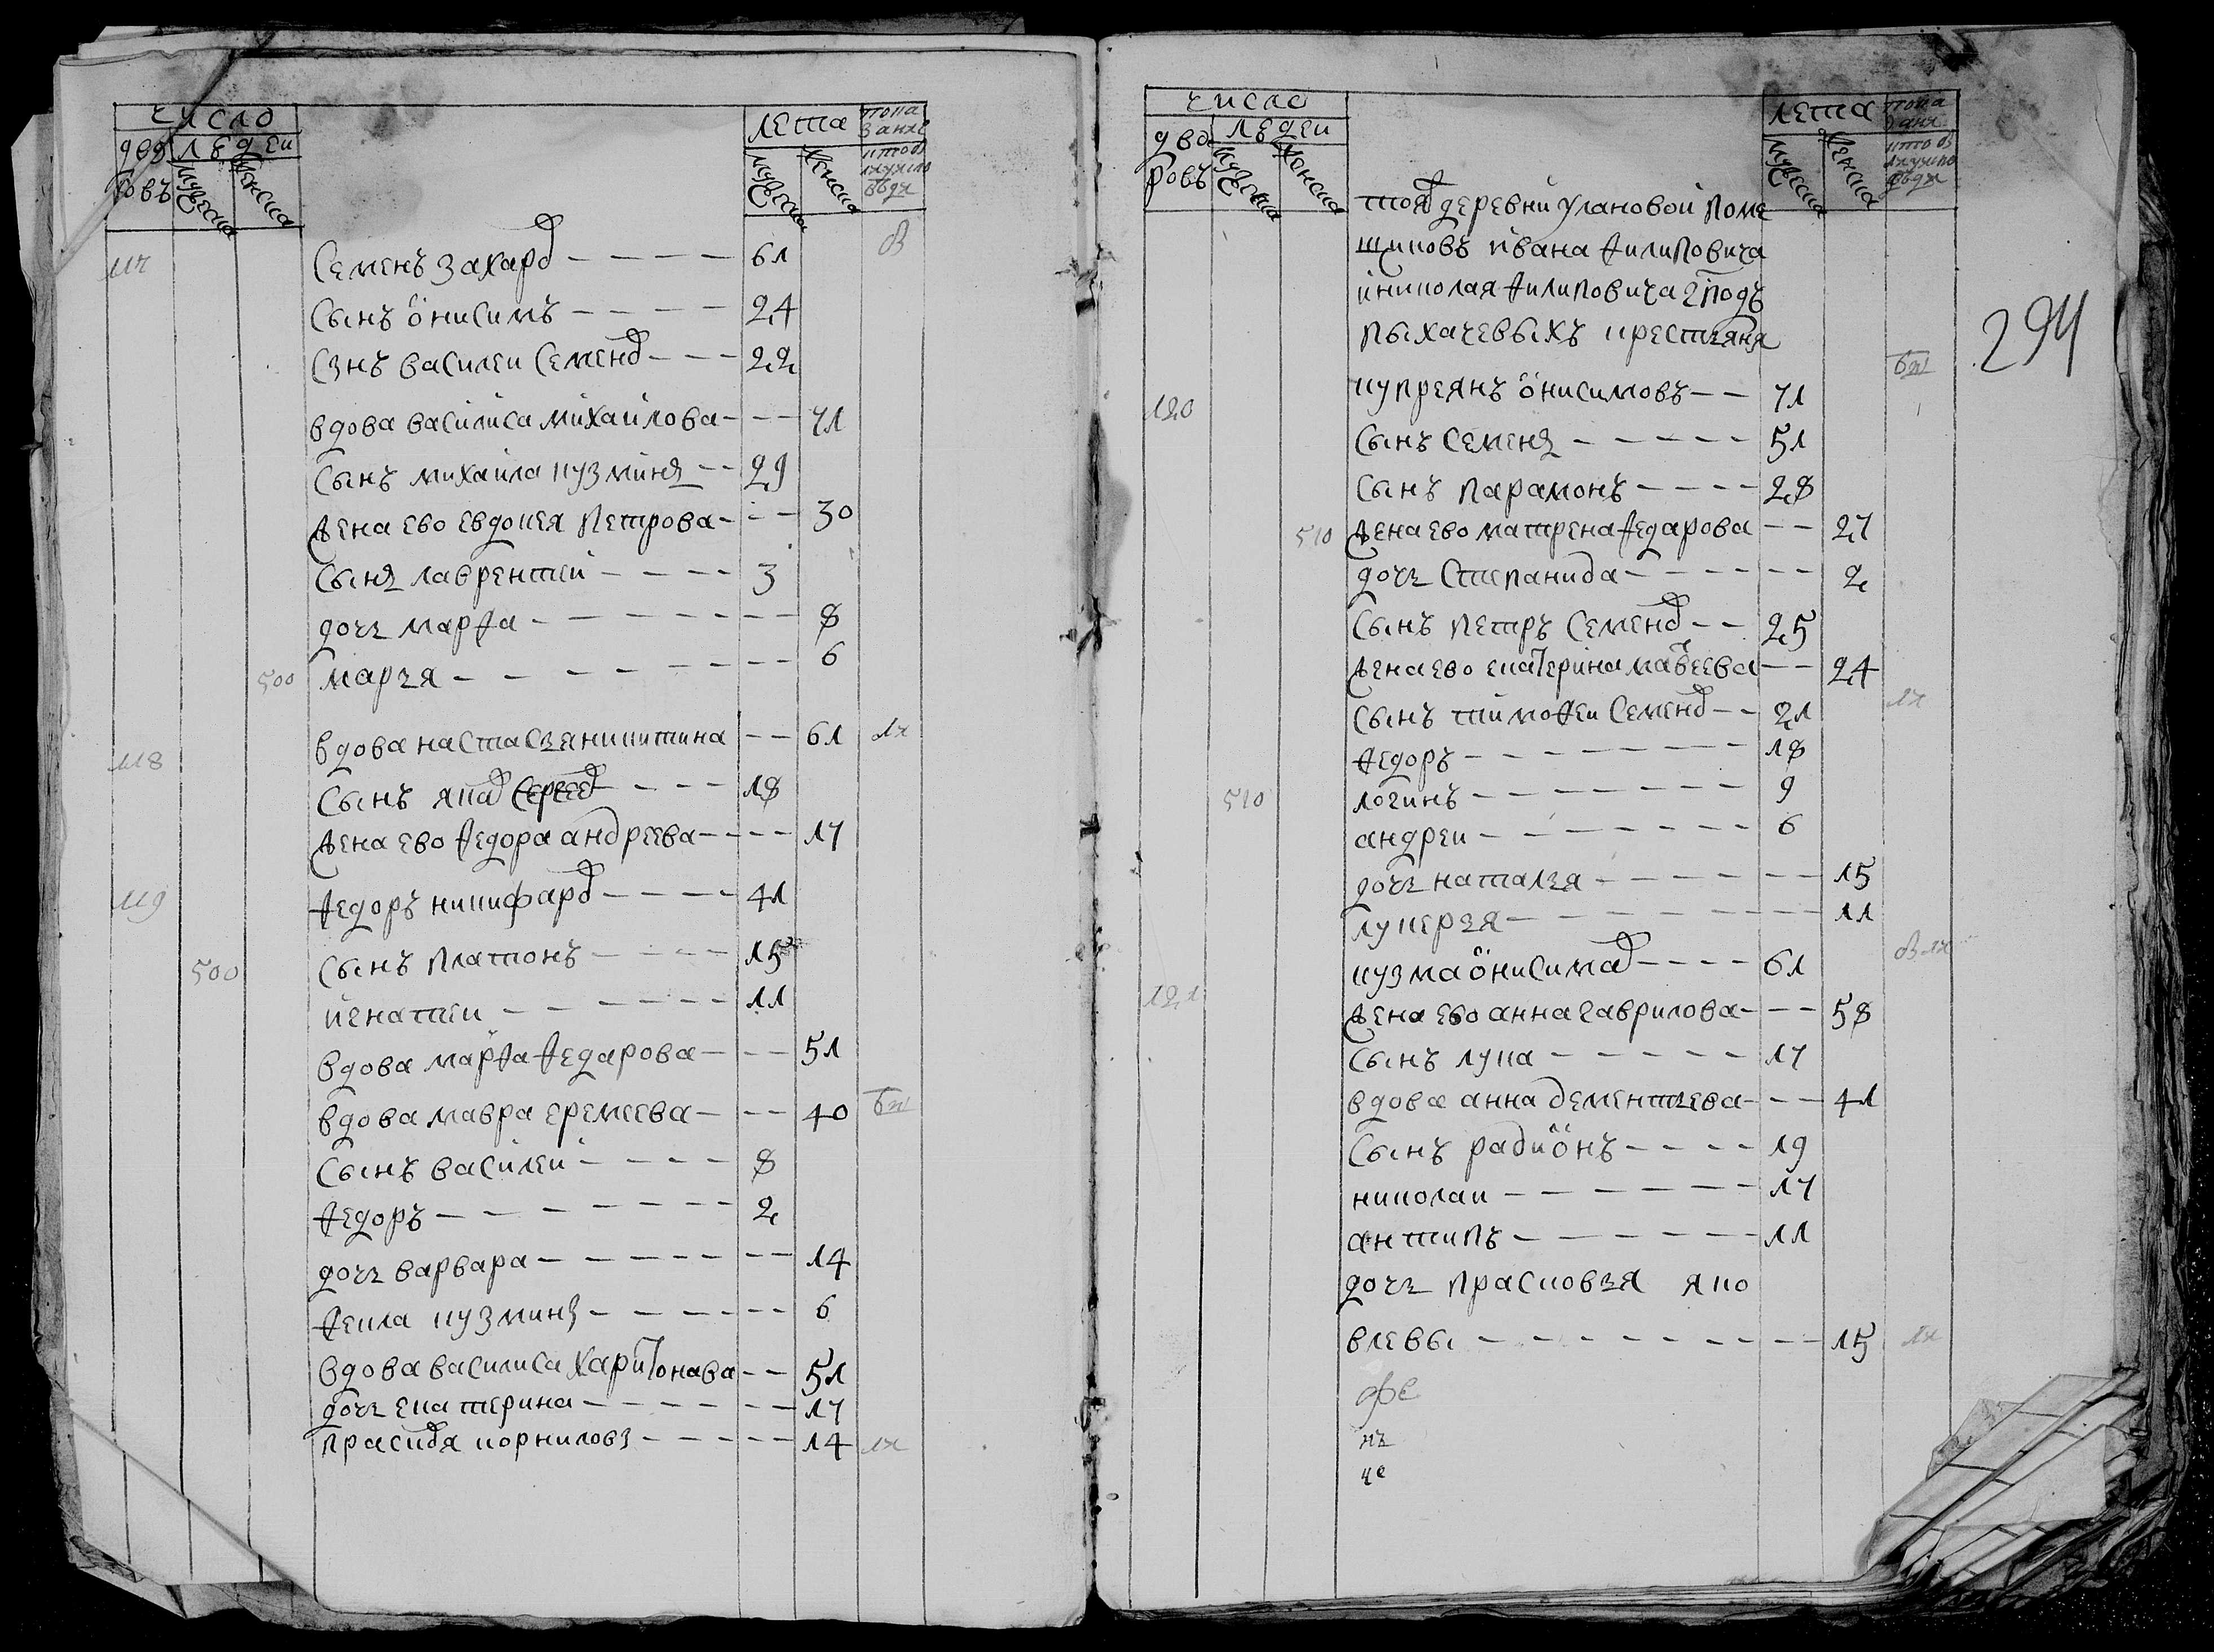 число
дво ровъ людеи
мужеска женска
лета
мужеска женска
117 Семенъ Захаров — — — — 61
Сынъ онисимъ — — — — 24
Сынъ василеи Семенов — — — 22
вдова василиса михаилова — — — 71
Сынъ михаила кузминъ — — 29
жена ево евдокея Петрова — — — 30
Сынъ лаврентеи — — — — 3
дочь марфа — — — — — — — 8
500 марья — — — — — — — 6
118 вдова настасья никитина — — 61
Сынъ яков Сергеев — — — — 18
жена ево федора андреева — — — — 17
119 федоръ никифаров — — — — 41
500 Сынъ Платонъ — — — — 15
игнатеи — — — — — — 11
вдова марфа федарова — — — 51
вдова мавра еремеева — — — 40
Сынъ василеи — — — — 8
федоръ — — — — — — — 2
дочь варвара — — — — — — — 14
фекла кузминъ — — — — — — 6
вдова василиса харитонава — — 51
дочь екатерина — — — — — — — 17
прасковя корниловъ — — — — — 14
число
дво ровъ людеи
мужеска женска
лета
мужеска женска
294
тоя деревни улановой Поме
щиковъ ивана филиповича
и николая филиповича господъ
Пыхачевыхъ крестьяня
120 купреянъ онисимовъ — — 71
Сынъ Семенъ — — — — — 51
Сынъ Парамонъ — — — — 28
510 жена ево матрена федарова — — 27
дочь Степанида — — — — — — 2
Сынъ Петръ Семенов — — 25
жена ево екатерина матвеева — — 24
Сынъ тимофеи Семенов — — 21
федоръ — — — — — — — — 18
510 логинъ — — — — — — — — 9
андреи — — — — — — — 6
дочь наталья — — — — — — — 15
лукерья — — — — — — — — 11
121 кузма онисимав — — — — 61
жена ево анна гаврилова — — — 58
Сынъ лука — — — — — 17
вдова анна дементьева — — — 41
Сынъ радионъ — — — — 19
николаи — — — — — — 17
антипъ — — — — — — 11
дочь прасковья яко
влевы — — — — — — — — — 15